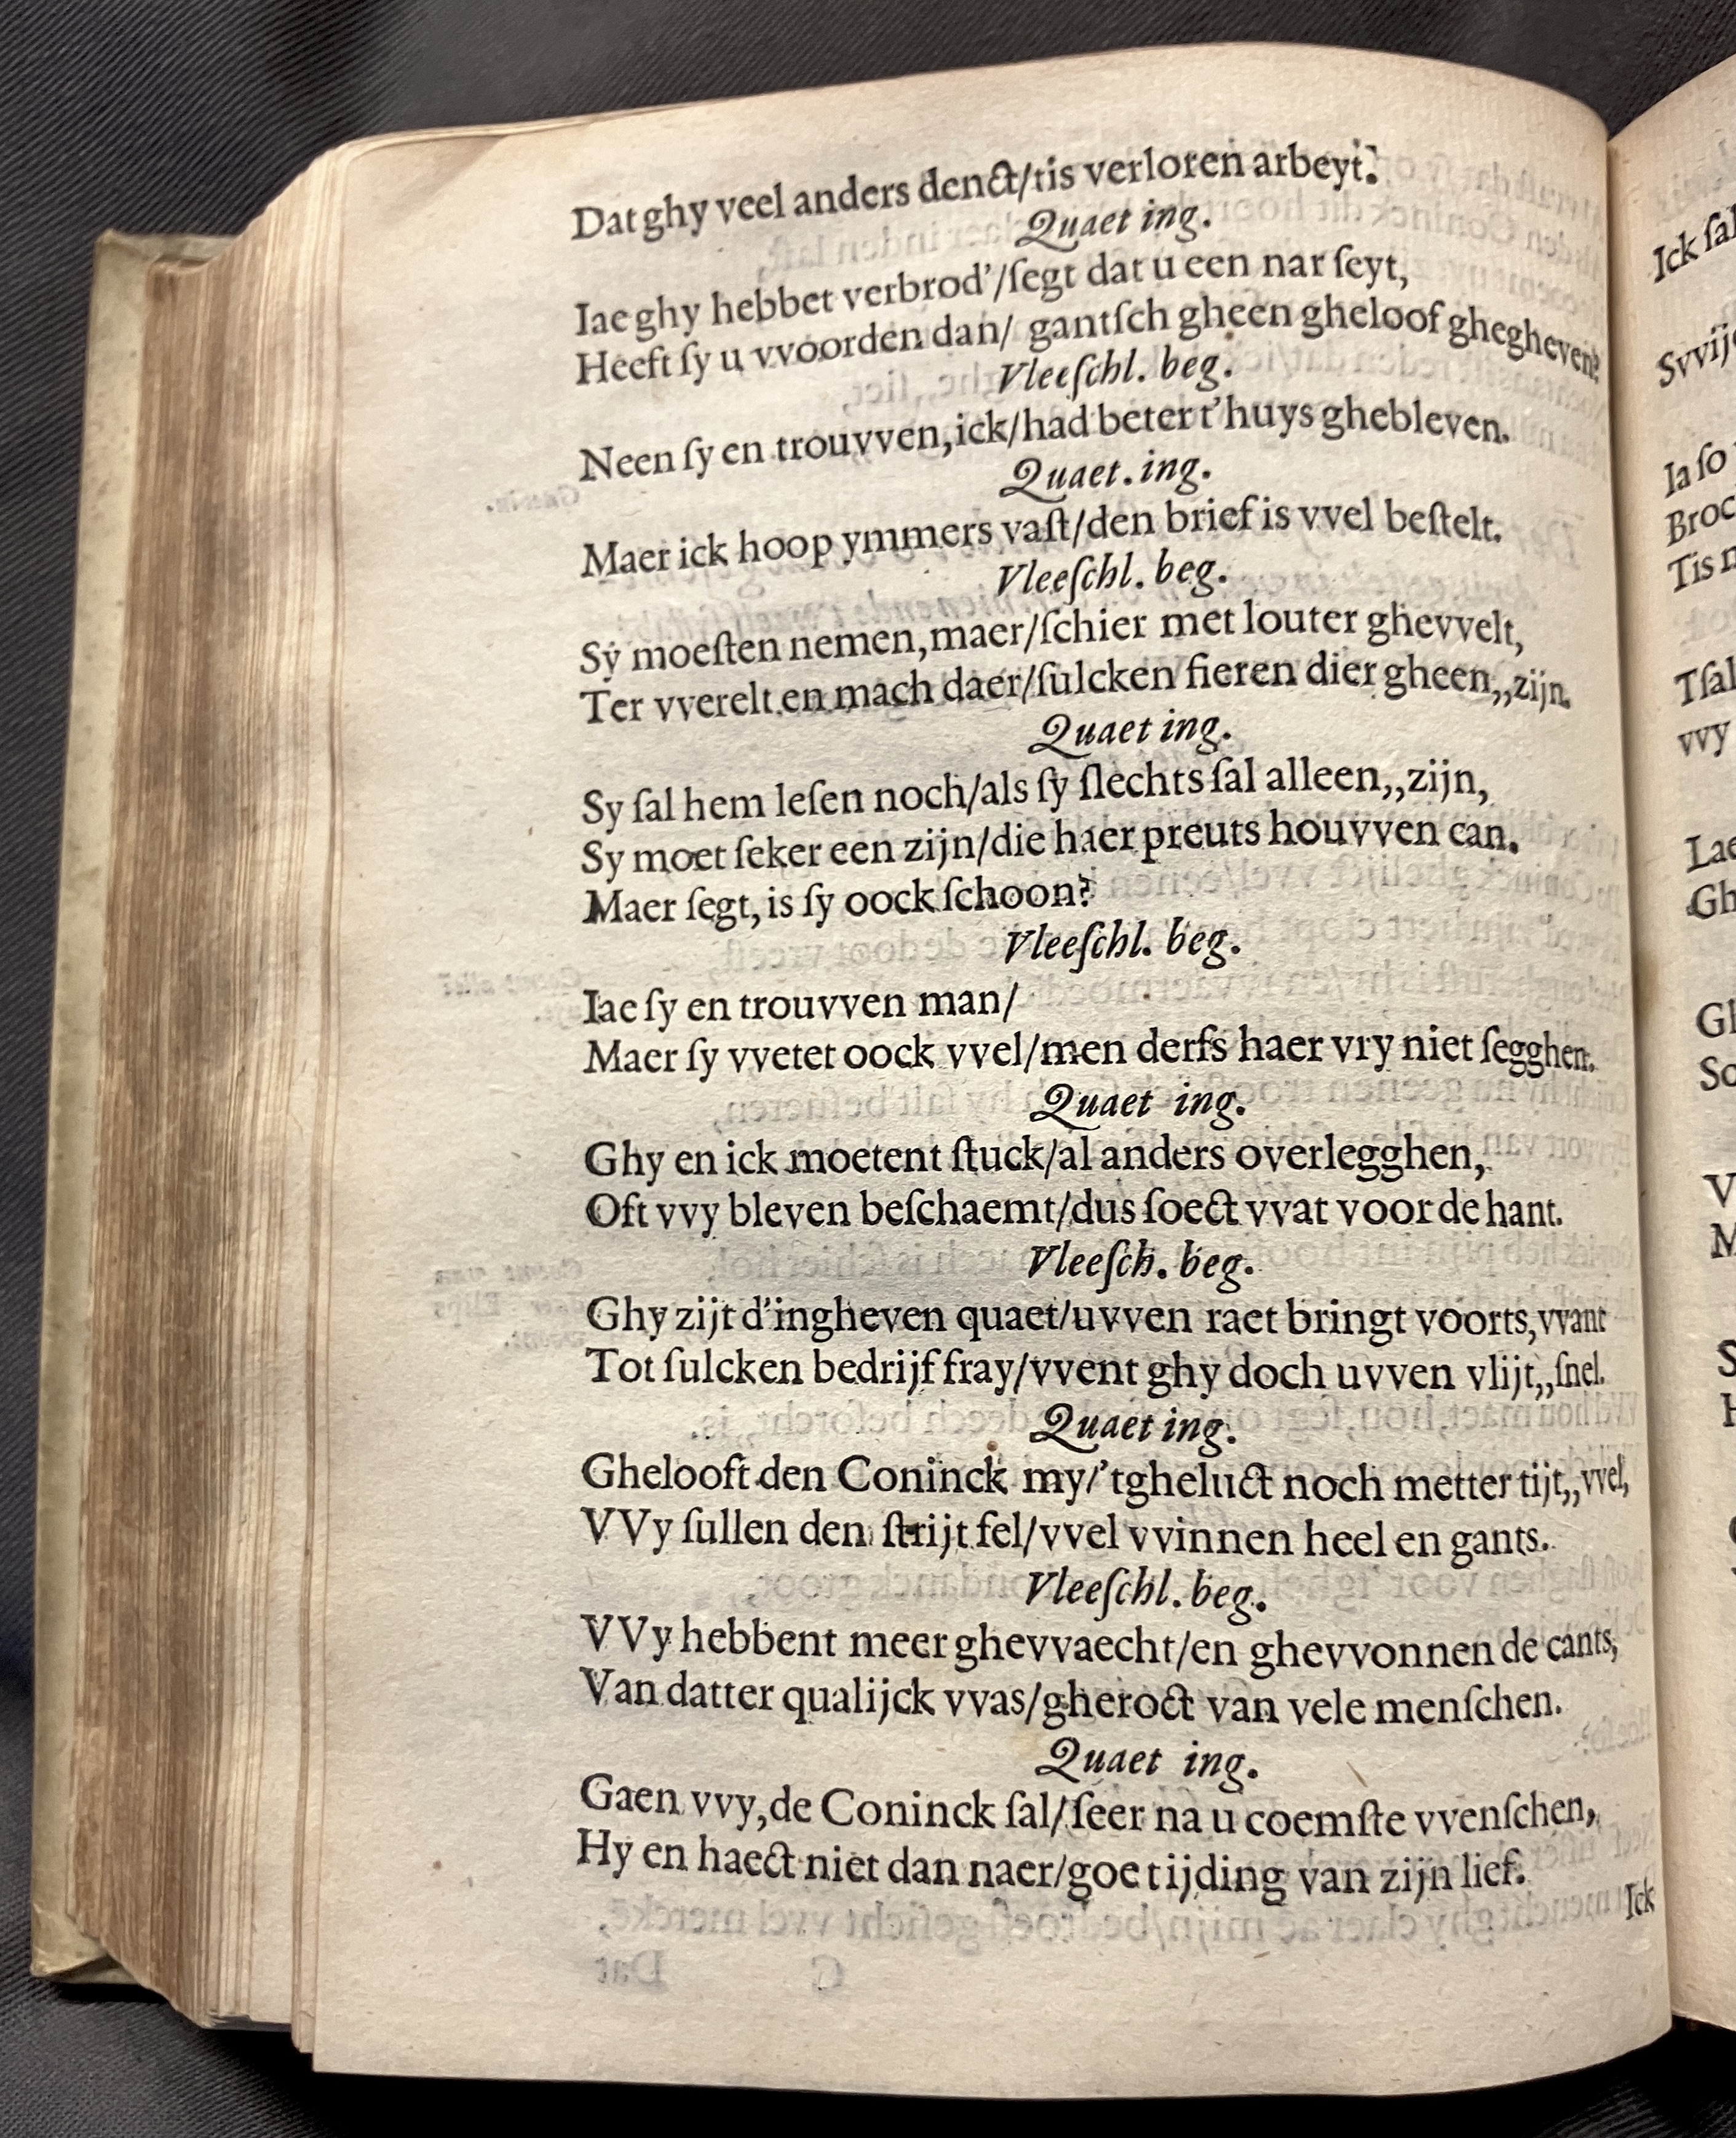 Dat ghy veel anders denct/tis verloren arbeyt.
Quaet ing.
Iae ghy hebbet verbrod’/ſegt dat u een nar ſeyt,
Heeft ſy u vvoorden dan/ gantſch gheen gheloof ghegheven?
Vleeſchl. beg.
Neen ſy en trouvven,ick/had beter t’huys ghebleven.
Quaet.ing.
Maer ick hoop ymmers vaſt/den brief is vvel beſtelt.
Vleeſchl. beg.
Sy moeſten nemen,maer/ſchier met louter ghevvelt,
Ter vverelt en mach daer/ſulcken fieren dier gheen,,zijn.
Quaet ing.
Sy ſal hem leſen noch/als ſy ſlechts ſal alleen,,zijn,
Sy moet ſeker een zijn/die haer preuts houvven can.
Maer ſegt, is ſy oock ſchoon?
Vleeſchl. beg.
Iae ſy en trouvven man/
Maer ſy vvetet oock vvel/men derfs haer vry niet ſegghen.
Quaet ing.
Ghy en ick moetent ſtuck/al anders overlegghen,
Oft vvy bleven beſchaemt/dus ſoect vvat voor de hant.
Vleeſch. beg.
Ghy zijt d’ingheven quaet/uvven raet bringt voorts,vvant
Tot ſulcken bedrijf fray/vvent ghy doch uvven vlijt,,ſnel.
Quaet ing.
Ghelooft den Coninck my/’tgheluct noch metter tijt,,vvel,
VVy ſullen den ſtrijt fel/vvel vvinnen heel en gants.
Vleeſchl. beg.
VVy hebbent meer ghevvaecht/en ghevvonnen de cants,
Van datter qualijck vvas/gheroct van vele menſchen.
Quaet ing.
Gaen vvy,de Coninck ſal/ſeer na u coemſte vvenſchen,
Hy en haect niet dan naer/goe tijding van zijn lief.
Ick
Ick
Ia ſo
Tis
vvy